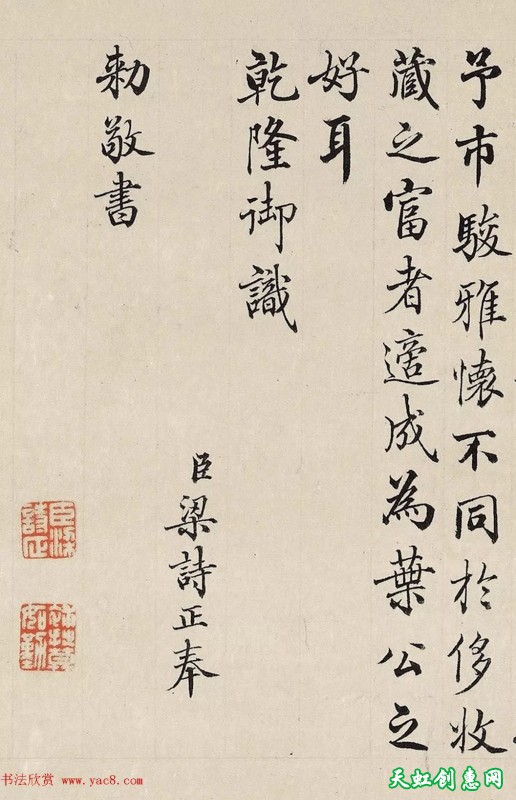 予市駿雅懷不同於侈收
藏之富者適成為葉公之
好耳
乾隆御識
臣梁詩正奉
勅敬書
臣梁
詩正
书法欣赏 www.yac8.com
天虹创惠网